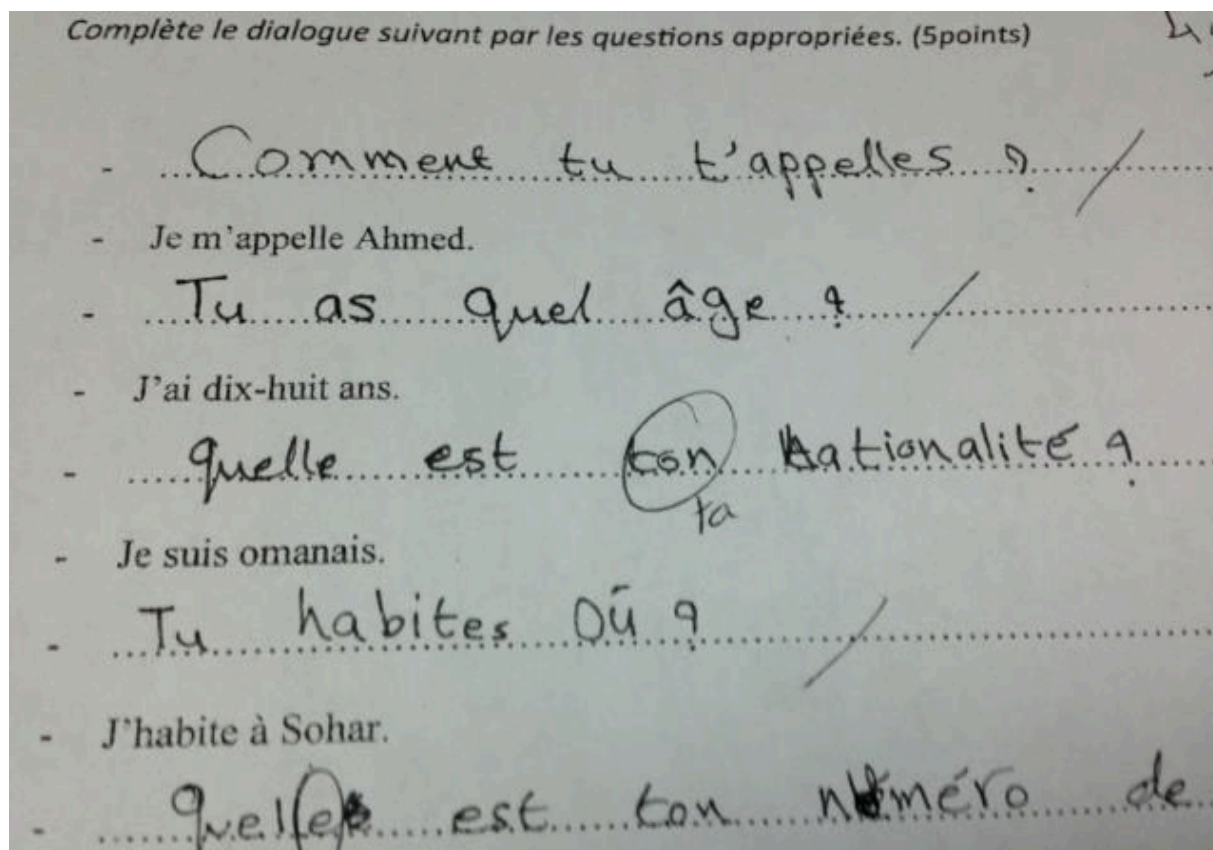 Complète le dialogue suivant par les questions appropriées. (5points)
- Comment tu t'appelles ?
- Je m'appelle Ahmed.
- Tu as quel âge ?
- J'ai dix-huit ans.
- quelle est ton nationalité ?
ta
- Je suis omanais.
- Tu habites Où ?
- J'habite à Sohar.
- Quelle est ton numéro de